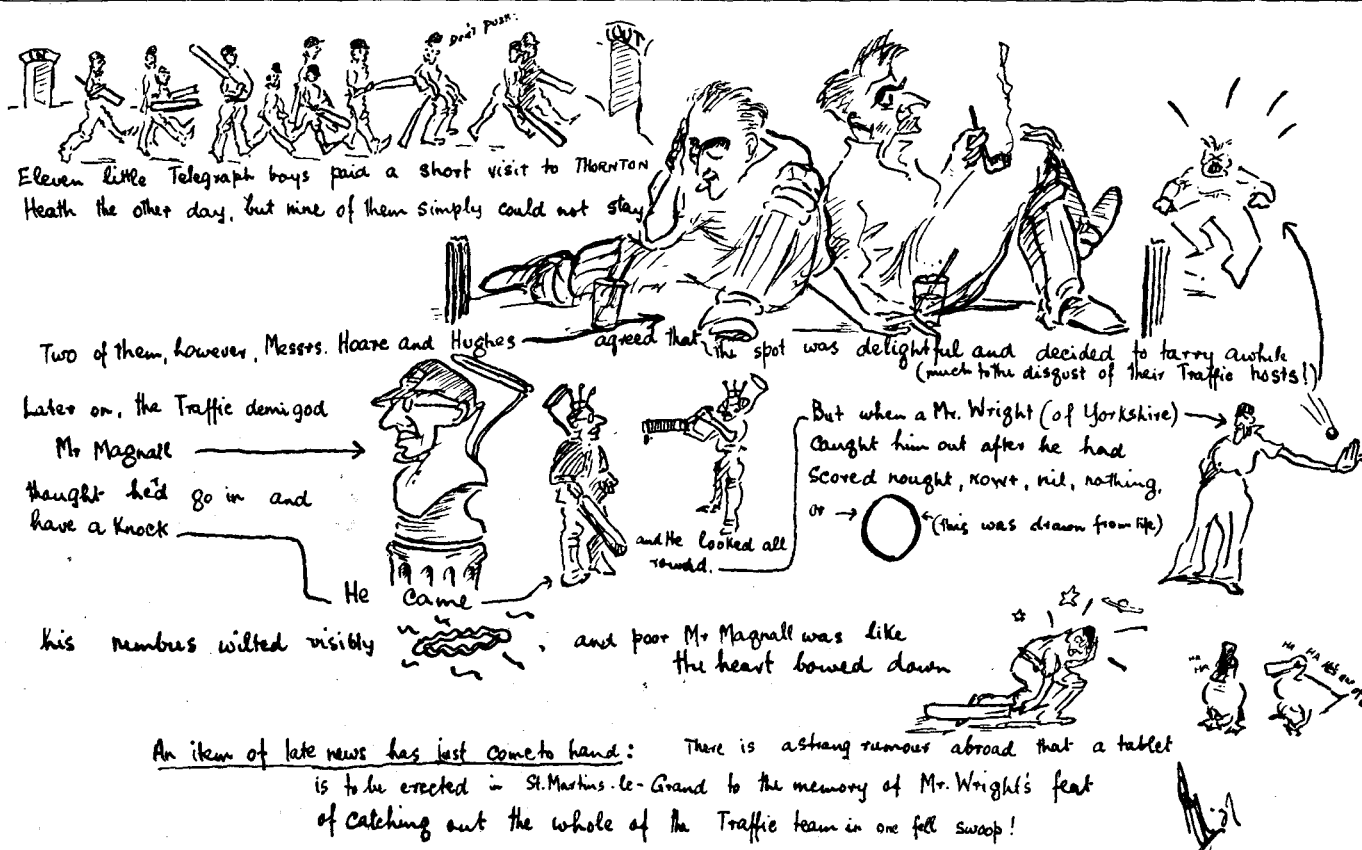 IN
Don't PUSH.
OUT
Eleven little Telegraph boys paid a short visit to THORNTON
Heath the other day, but nine of them simply could not stay
Two of them, however, Messrs. Hoare and Hughes agreed that the spot was delightful and decided to tarry awhile
(much to the disgust of their Traffic hosts!)
Later on, the Traffic demigod
Mr Magnall
thought he'd go in and
have a knock
He came
and He looked all
round.
But when a Mr. Wright (of Yorkshire)
caught him out after he had
scored nought, nowt, nil, nothing,
or
(this was drawn from life)
his nimbus wilted visibly , and poor Mr Magnall was like
the heart bowed down
HA HA
HA HA HE'S
An item of late news has just come to hand: There is a strang rumour abroad that a tablet
is to be erected in St. Martins-le-Grand to the memory of Mr. Wright's feat
of catching out the whole of the Traffic team in one fell swoop!